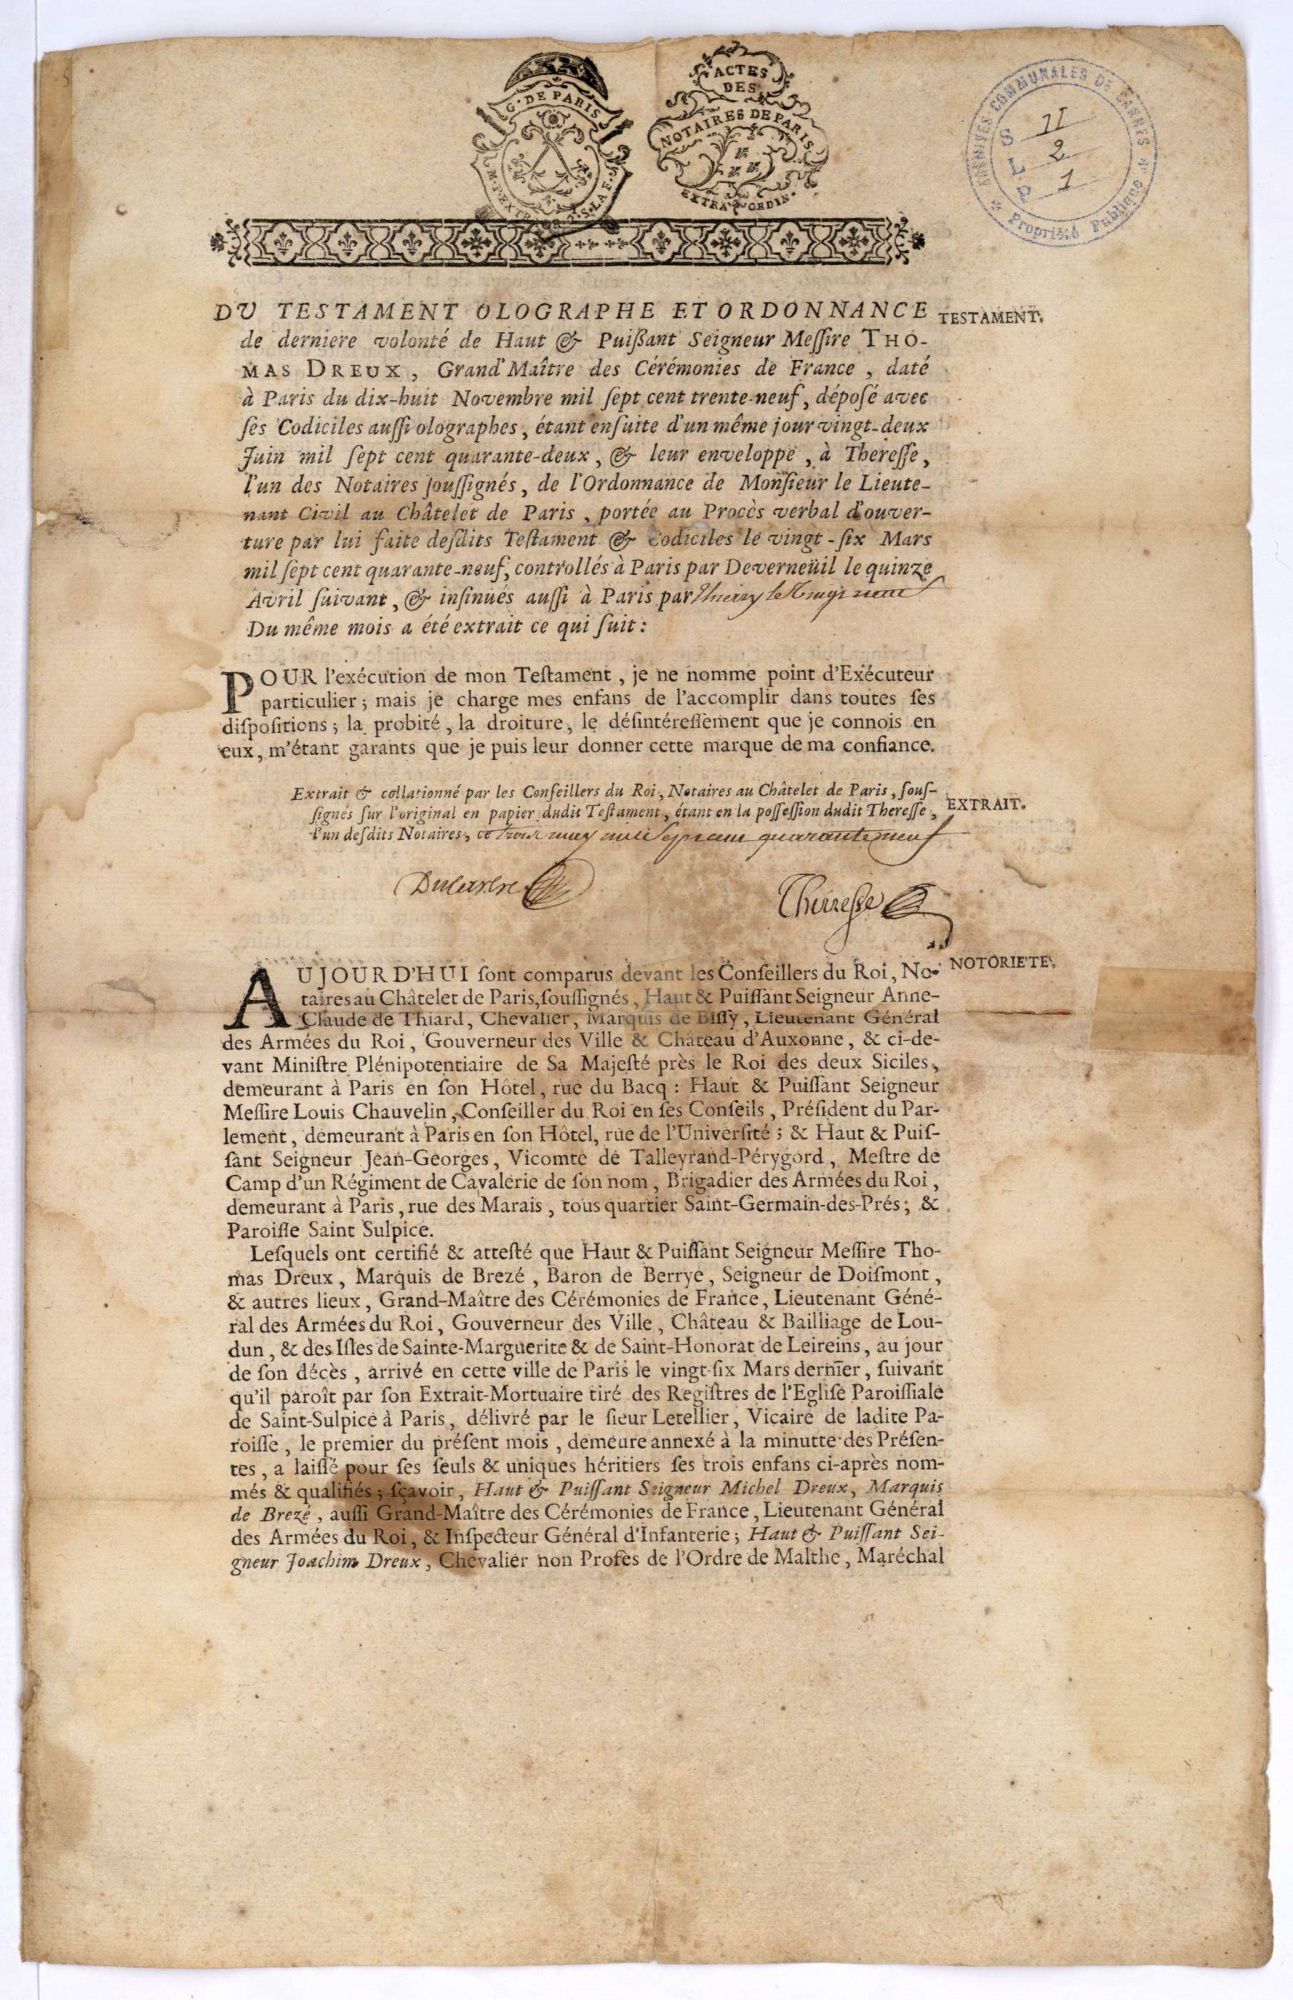 G. DE PARIS
ACTES
DES
NOTAIRES DE PARIS
EXTRAORDIN.
ARCHIVES COMMUNALES DE CANNES
S II
L 2
P 1
Propriété Publique
DU TESTAMENT OLOGRAPHE ET ORDONNANCE
TESTAMENT.
de derniere volonté de Haut & Puißant Seigneur Meſſire THO-
MAS DREUX, Grand Maître des Cérémonies de France, daté
à Paris du dix-huit Novembre mil ſept cent trente-neuf, dépoſé avec
ſes Codiciles auſſi olographes, étant enſuite d'un même jour vingt-deux
Juin mil ſept cent quarante-deux, & leur enveloppe, à Thereſſe,
l'un des Notaires ſouſſignés, de l'Ordonnance de Monſieur le Lieute-
nant Civil au Châtelet de Paris, portée au Procès verbal d'ouver-
ture par lui faite deſdits Teſtament & Codiciles le vingt-ſix Mars
mil ſept cent quarante-neuf, controllés à Paris par Deverneüil le quinze
Avril ſuivant, & inſinués auſſi à Paris par Thierry le
Du même mois a été extrait ce qui ſuit:
POUR l'exécution de mon Teſtament, je ne nomme point d'Exécuteur
particulier; mais je charge mes enfans de l'accomplir dans toutes ſes
diſpoſitions; la probité, la droiture, le déſintéreſſement que je connois en
eux, m'étant garants que je puis leur donner cette marque de ma confiance.
Extrait & collationné par les Conſeillers du Roi, Notaires au Châtelet de Paris, ſouſ-
EXTRAIT.
ſignés ſur l'original en papier dudit Teſtament, étant en la poſſeſſion dudit Thereſſe,
l'un deſdits Notaires, ce trois may mil Sept cent quarante neuf
Thereſſe
AUJOURD'HUI ſont comparus devant les Conſeillers du Roi, No-
NOTORIETE'.
taires au Châtelet de Paris, ſouſſignés, Haut & Puiſſant Seigneur Anne-
Claude de Thiard, Chevalier, Marquis de Biſſy, Lieutenant Général
des Armées du Roi, Gouverneur des Ville & Château d'Auxonne, & ci-de-
vant Miniſtre Plénipotentiaire de Sa Majeſté près le Roi des deux Siciles,
demeurant à Paris en ſon Hôtel, rue du Bacq: Haut & Puiſſant Seigneur
Meſſire Louis Chauvelin, Conſeiller du Roi en ſes Conſeils, Préſident du Par-
lement, demeurant à Paris en ſon Hôtel, rue de l'Univerſité; & Haut & Puiſ-
ſant Seigneur Jean-Georges, Vicomte de Talleyrand-Pérygord, Meſtre de
Camp d'un Régiment de Cavalerie de ſon nom, Brigadier des Armées du Roi,
demeurant à Paris, rue des Marais, tous quartier Saint-Germain-des-Prés; &
Paroiſſe Saint Sulpice.
Leſquels ont certifié & atteſté que Haut & Puiſſant Seigneur Meſſire Tho-
mas Dreux, Marquis de Brezé, Baron de Berrye, Seigneur de Doiſmont,
& autres lieux, Grand-Maître des Cérémonies de France, Lieutenant Géné-
ral des Armées du Roi, Gouverneur des Ville, Château & Bailliage de Lou-
dun, & des Iſles de Sainte-Marguerite & de Saint-Honorat de Leireins, au jour
de ſon décès, arrivé en cette ville de Paris le vingt-ſix Mars dernier, ſuivant
qu'il paroît par ſon Extrait-Mortuaire tiré des Regiſtres de l'Egliſe Paroiſſiale
de Saint-Sulpice à Paris, délivré par le ſieur Letellier, Vicaire de ladite Pa-
roiſſe, le premier du préſent mois, demeure annexé à la minutte des Préſen-
tes, a laiſſé pour ſes ſeuls & uniques héritiers ſes trois enfans ci-après nom-
més & qualifiés; ſçavoir, Haut & Puiſſant Seigneur Michel Dreux, Marquis
de Brezé, auſſi Grand-Maître des Cérémonies de France, Lieutenant Général
des Armées du Roi, & Inſpecteur Général d'Infanterie; Haut & Puiſſant Sei-
gneur Joachim Dreux, Chevalier non Profes de l'Ordre de Malthe, Maréchal